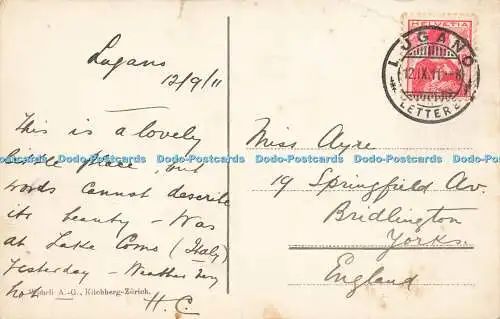 Lugano
12/9/11
This is a lovely
little place but
words cannot describe
its beauty - Was
at Lake Como (Italy)
yesterday - Weather very
hot
H. C.
Wehrli A.-G., Kilchberg-Zürich.
HELVETIA
LUGANO
12.IX.11
LETTERE
Miss Ayre
19 Springfield Av.
Bridlington
Yorks.
England
Dodo-Postcards Dodo-Postcards Dodo-Postcards Dodo-Postcards Dodo-Postcards